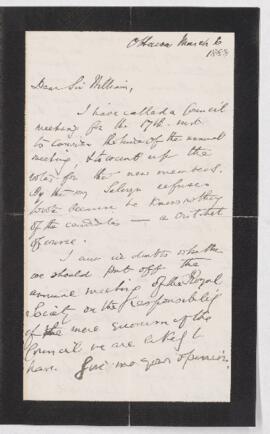 Ottawa March 6
1888
Dear Sir William,
I have called a Council
meeting for the 17th inst.
to consider the time of the annual
meeting, & to count up the
votes for the new members.
By the way Selwyn refuses
to vote because he knows nothing
of the candidates — a
of course.
I am in doubt whether
we should put off the
annual meeting of the Royal
Society on the responsibility
of the mere quorum of the
Council we are likely to
have. Give me your opinion.